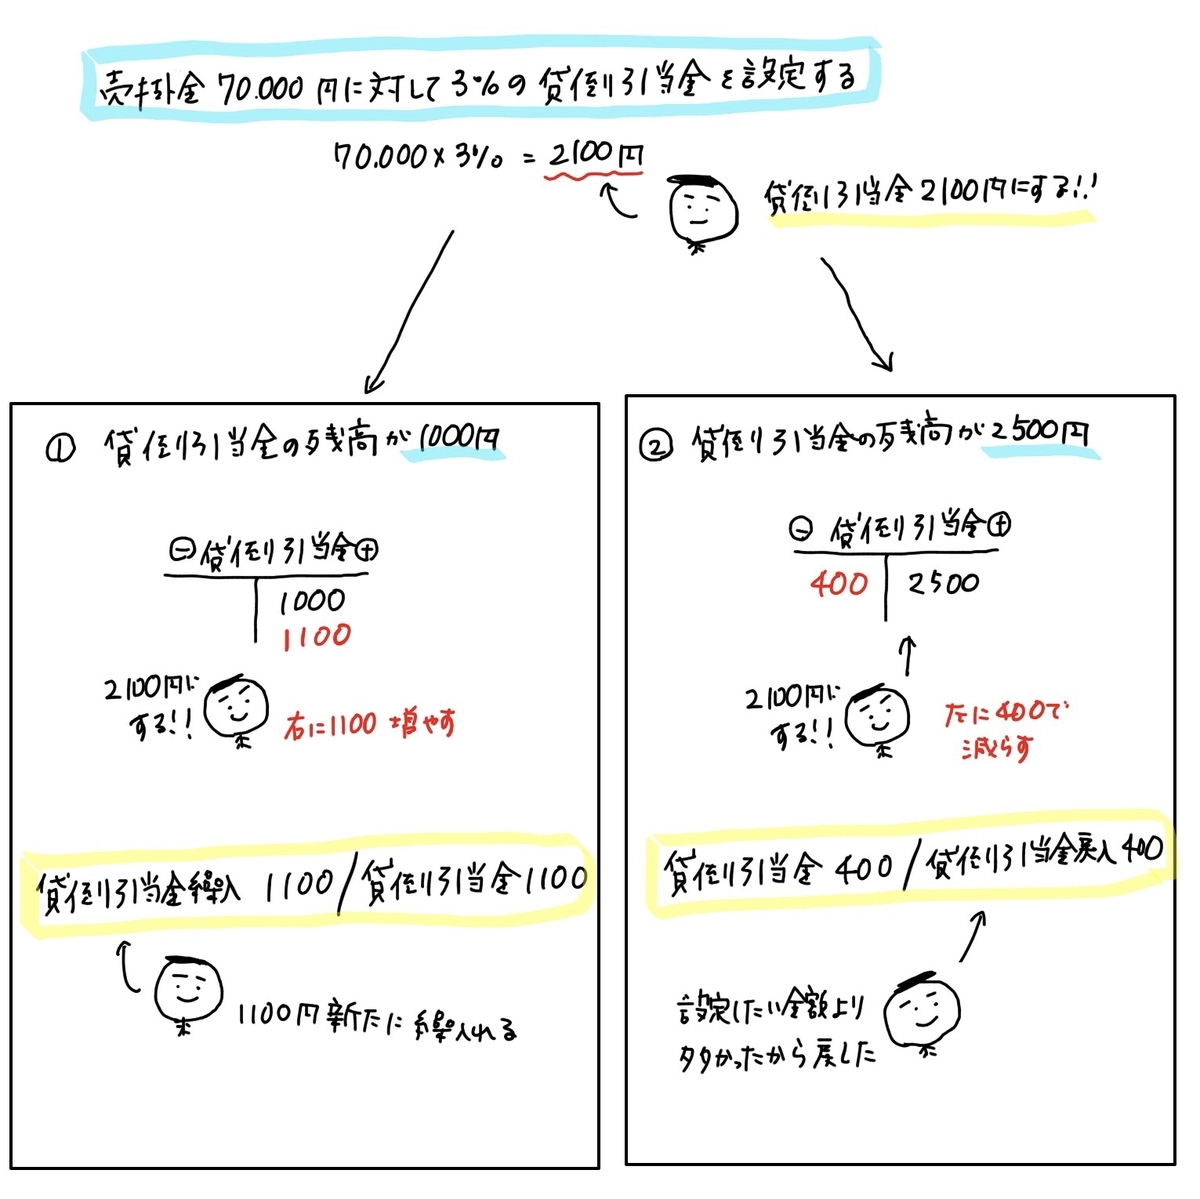 売掛金 70.000 円に対して 3%の 貸倒引当金を設定する
70.000 × 3% = 2100円
貸倒引当金 2100円にする!!
① 貸倒引当金の残高が 1000円
⊖ 貸倒引当金 ⊕
1000
1100
2100円に
する!!
右に1100 増やす
貸倒引当金繰入 1100 / 貸倒引当金 1100
1100円 新たに 繰入れる
② 貸倒引当金の残高が 2500円
⊖ 貸倒引当金 ⊕
400 2500
2100円に
する!!
左に400で
減らす
貸倒引当金 400 / 貸倒引当金戻入 400
設定したい金額より
多かったから戻した